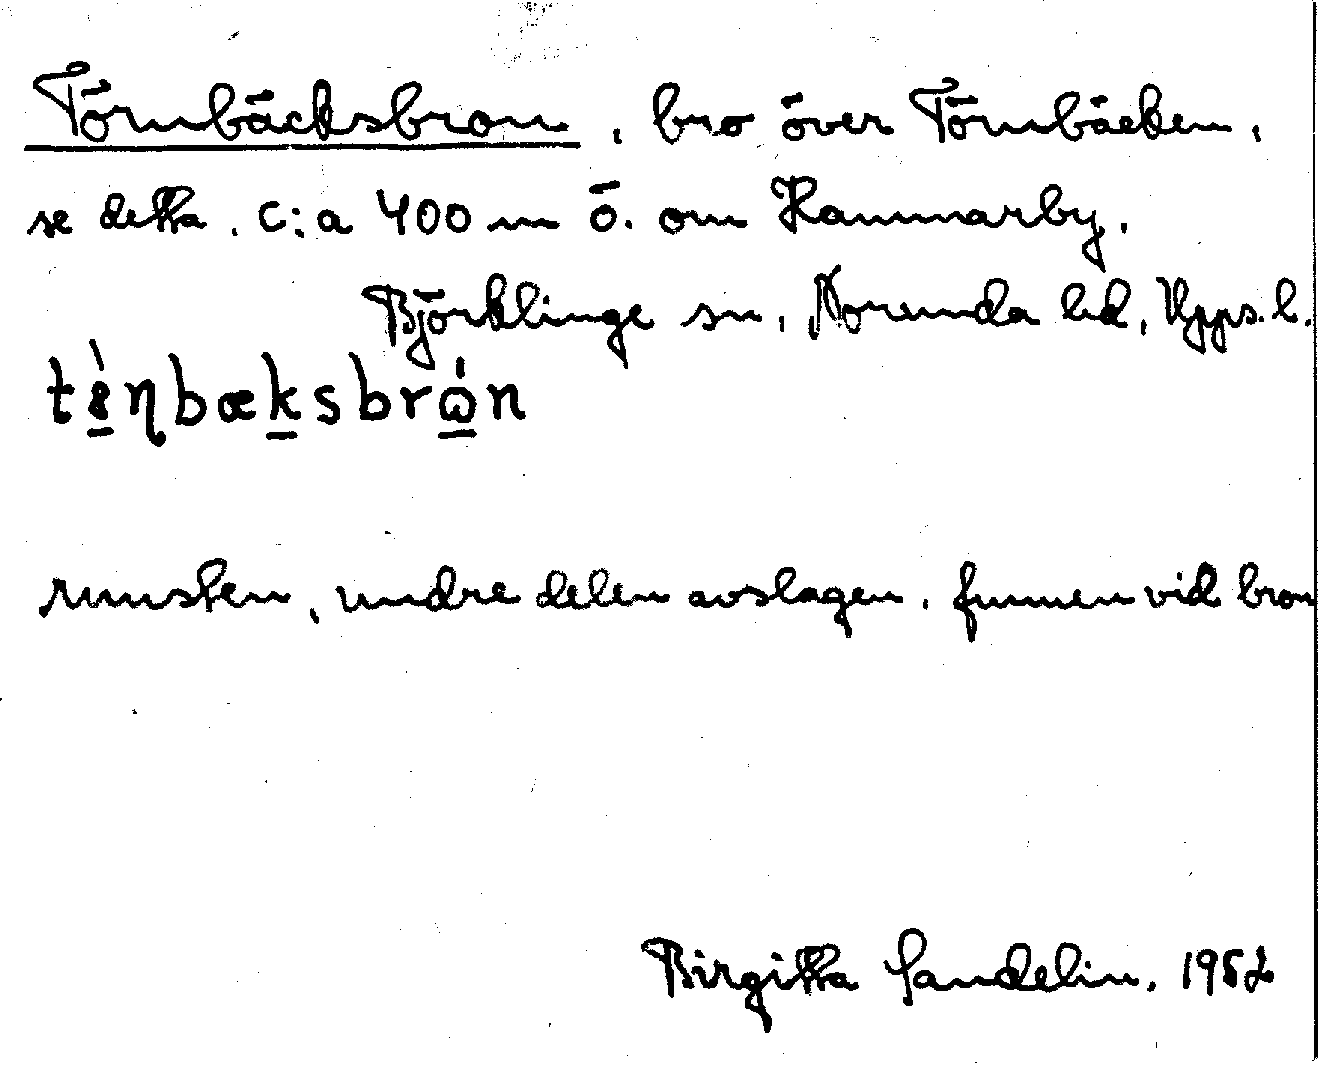 Törnbäcksbron, bro över Törnbäcken,
se detta. C:a 400 m ö. om Hammarby.
Björklinge sn, Norunda hd, Upps. l.
runsten, undre delen avslagen, funnen vid bron
Birgitta Sandelin. 1952